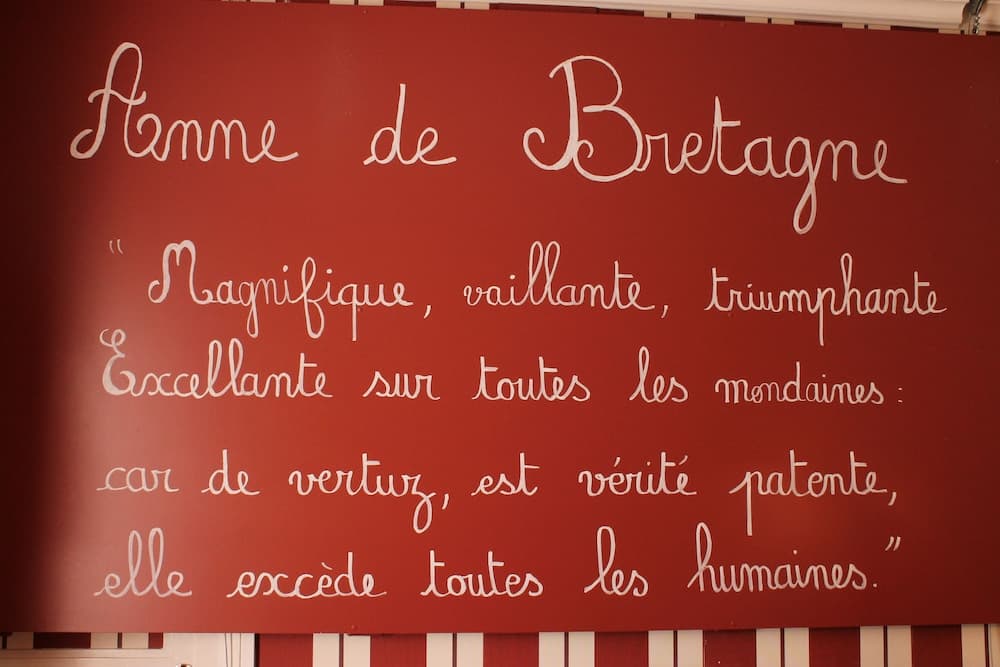 Anne de Bretagne
" Magnifique, vaillante, triumphante
Excellante sur toutes les mondaines :
car de vertuz, est vérité patente,
elle excède toutes les humaines."